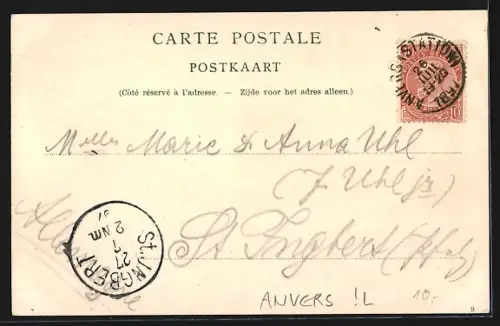 CARTE POSTALE
POSTKAART
(Côté réservé à l'adresse. — Zijde voor het adres alleen.)
ANVERS (STATION)
26
JUIL
10
Melles Marie & Anna Uhl
(J. Uhl jr)
St Ingbert (Pfalz)
St. INGBERT
27
7
2 Nm.
97
ANVERS !L
10.-
9